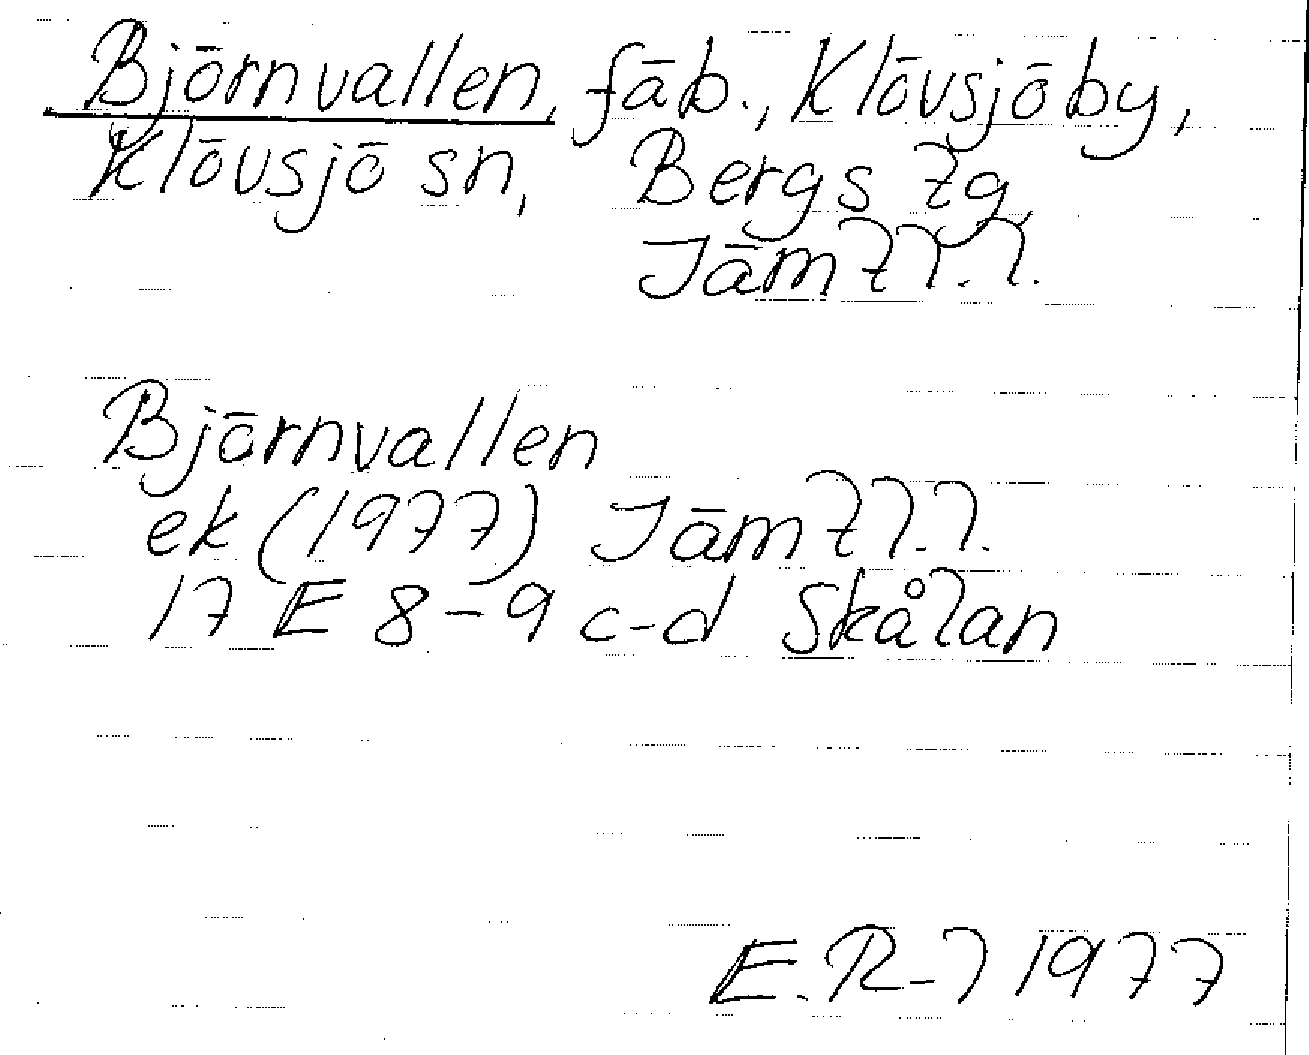 Björnvallen, fäb., Klövsjö by,
Klövsjö sn, Bergs tg,
Jämtl.l.
Björnvallen
ek (1977) Jämtl.l.
17 E 8-9 c-d Skålan
E.R-l 1977